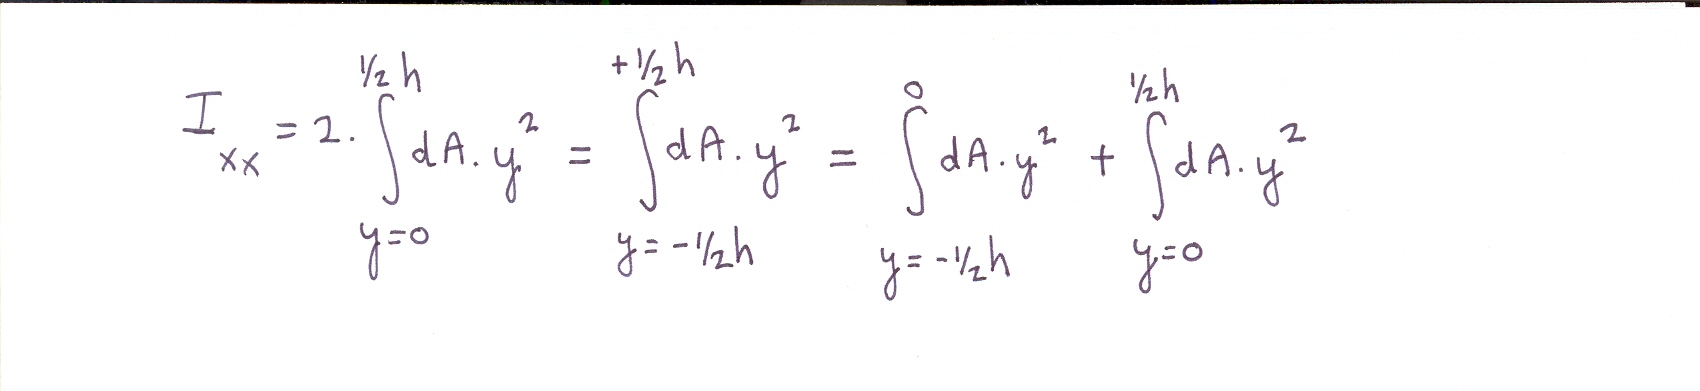 I_xx = 2. ∫_{y=0}^{1/2 h} dA. y² = ∫_{y=-1/2 h}^{+1/2 h} dA. y² = ∫_{y=-1/2 h}^{0} dA. y² + ∫_{y=0}^{1/2 h} dA. y²